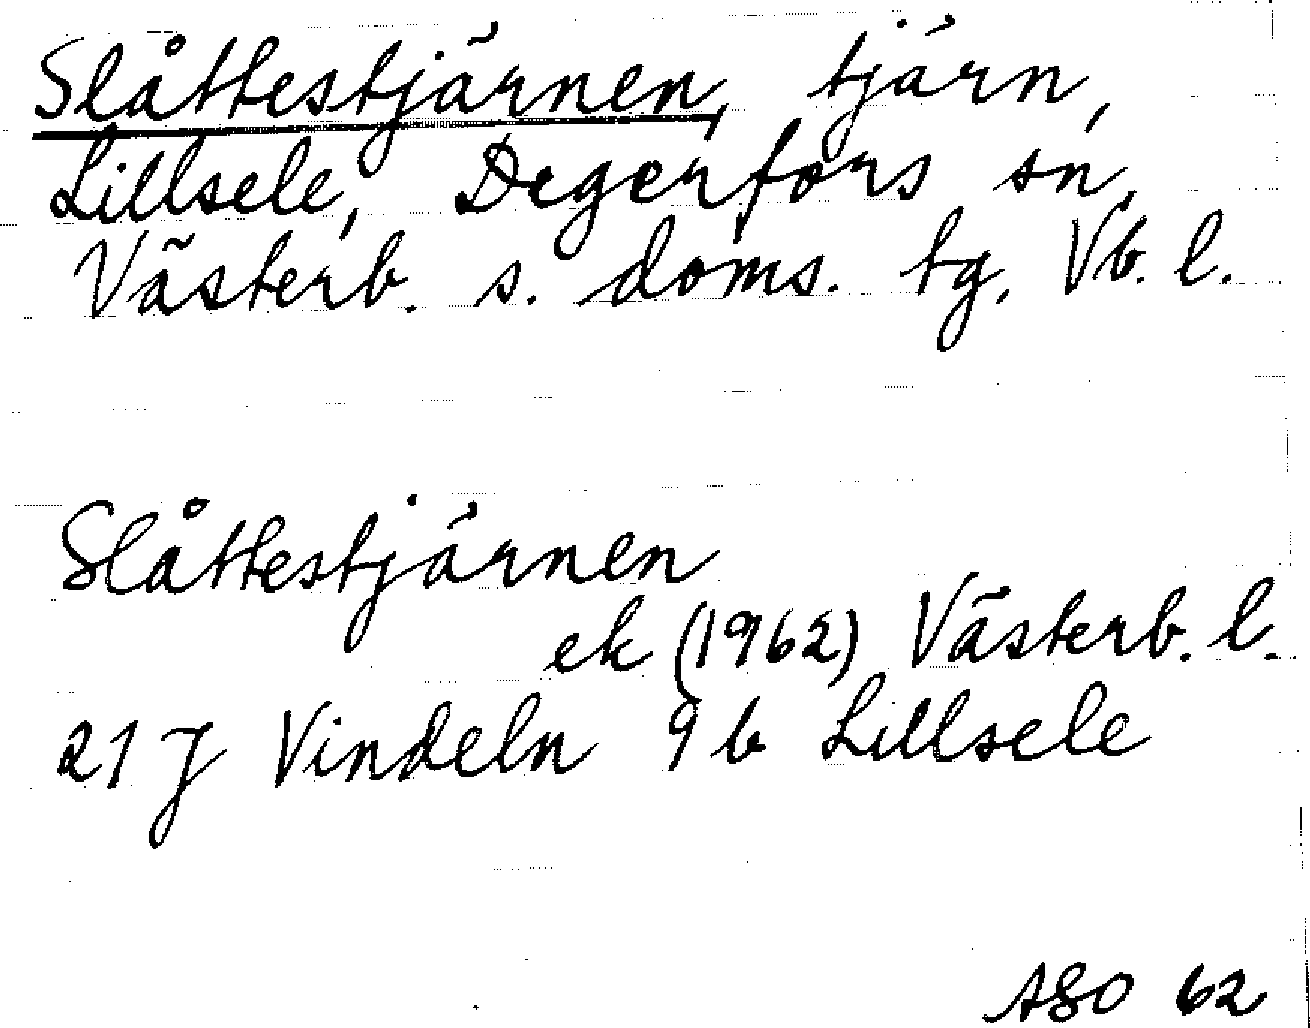 Slåttestjärnen, tjärn,
Lillsele, Degerfors sn,
Västerb. s. doms. tg, Vb. l.
Slåttestjärnen
ek (1962) Västerb. l.
21 J Vindeln 9 b Lillsele
ASO 62